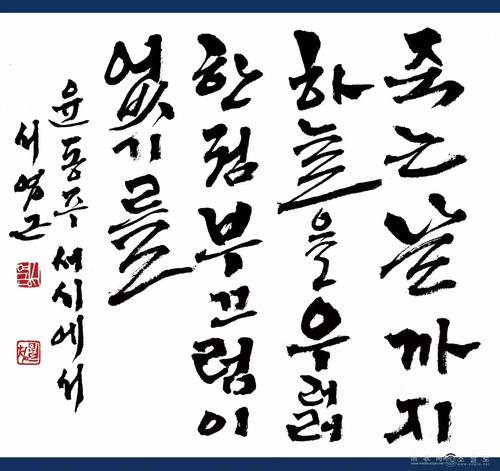 죽는날까지
하늘을우러러
한점부끄럼이
없기를
윤동주 서시에서
서영근